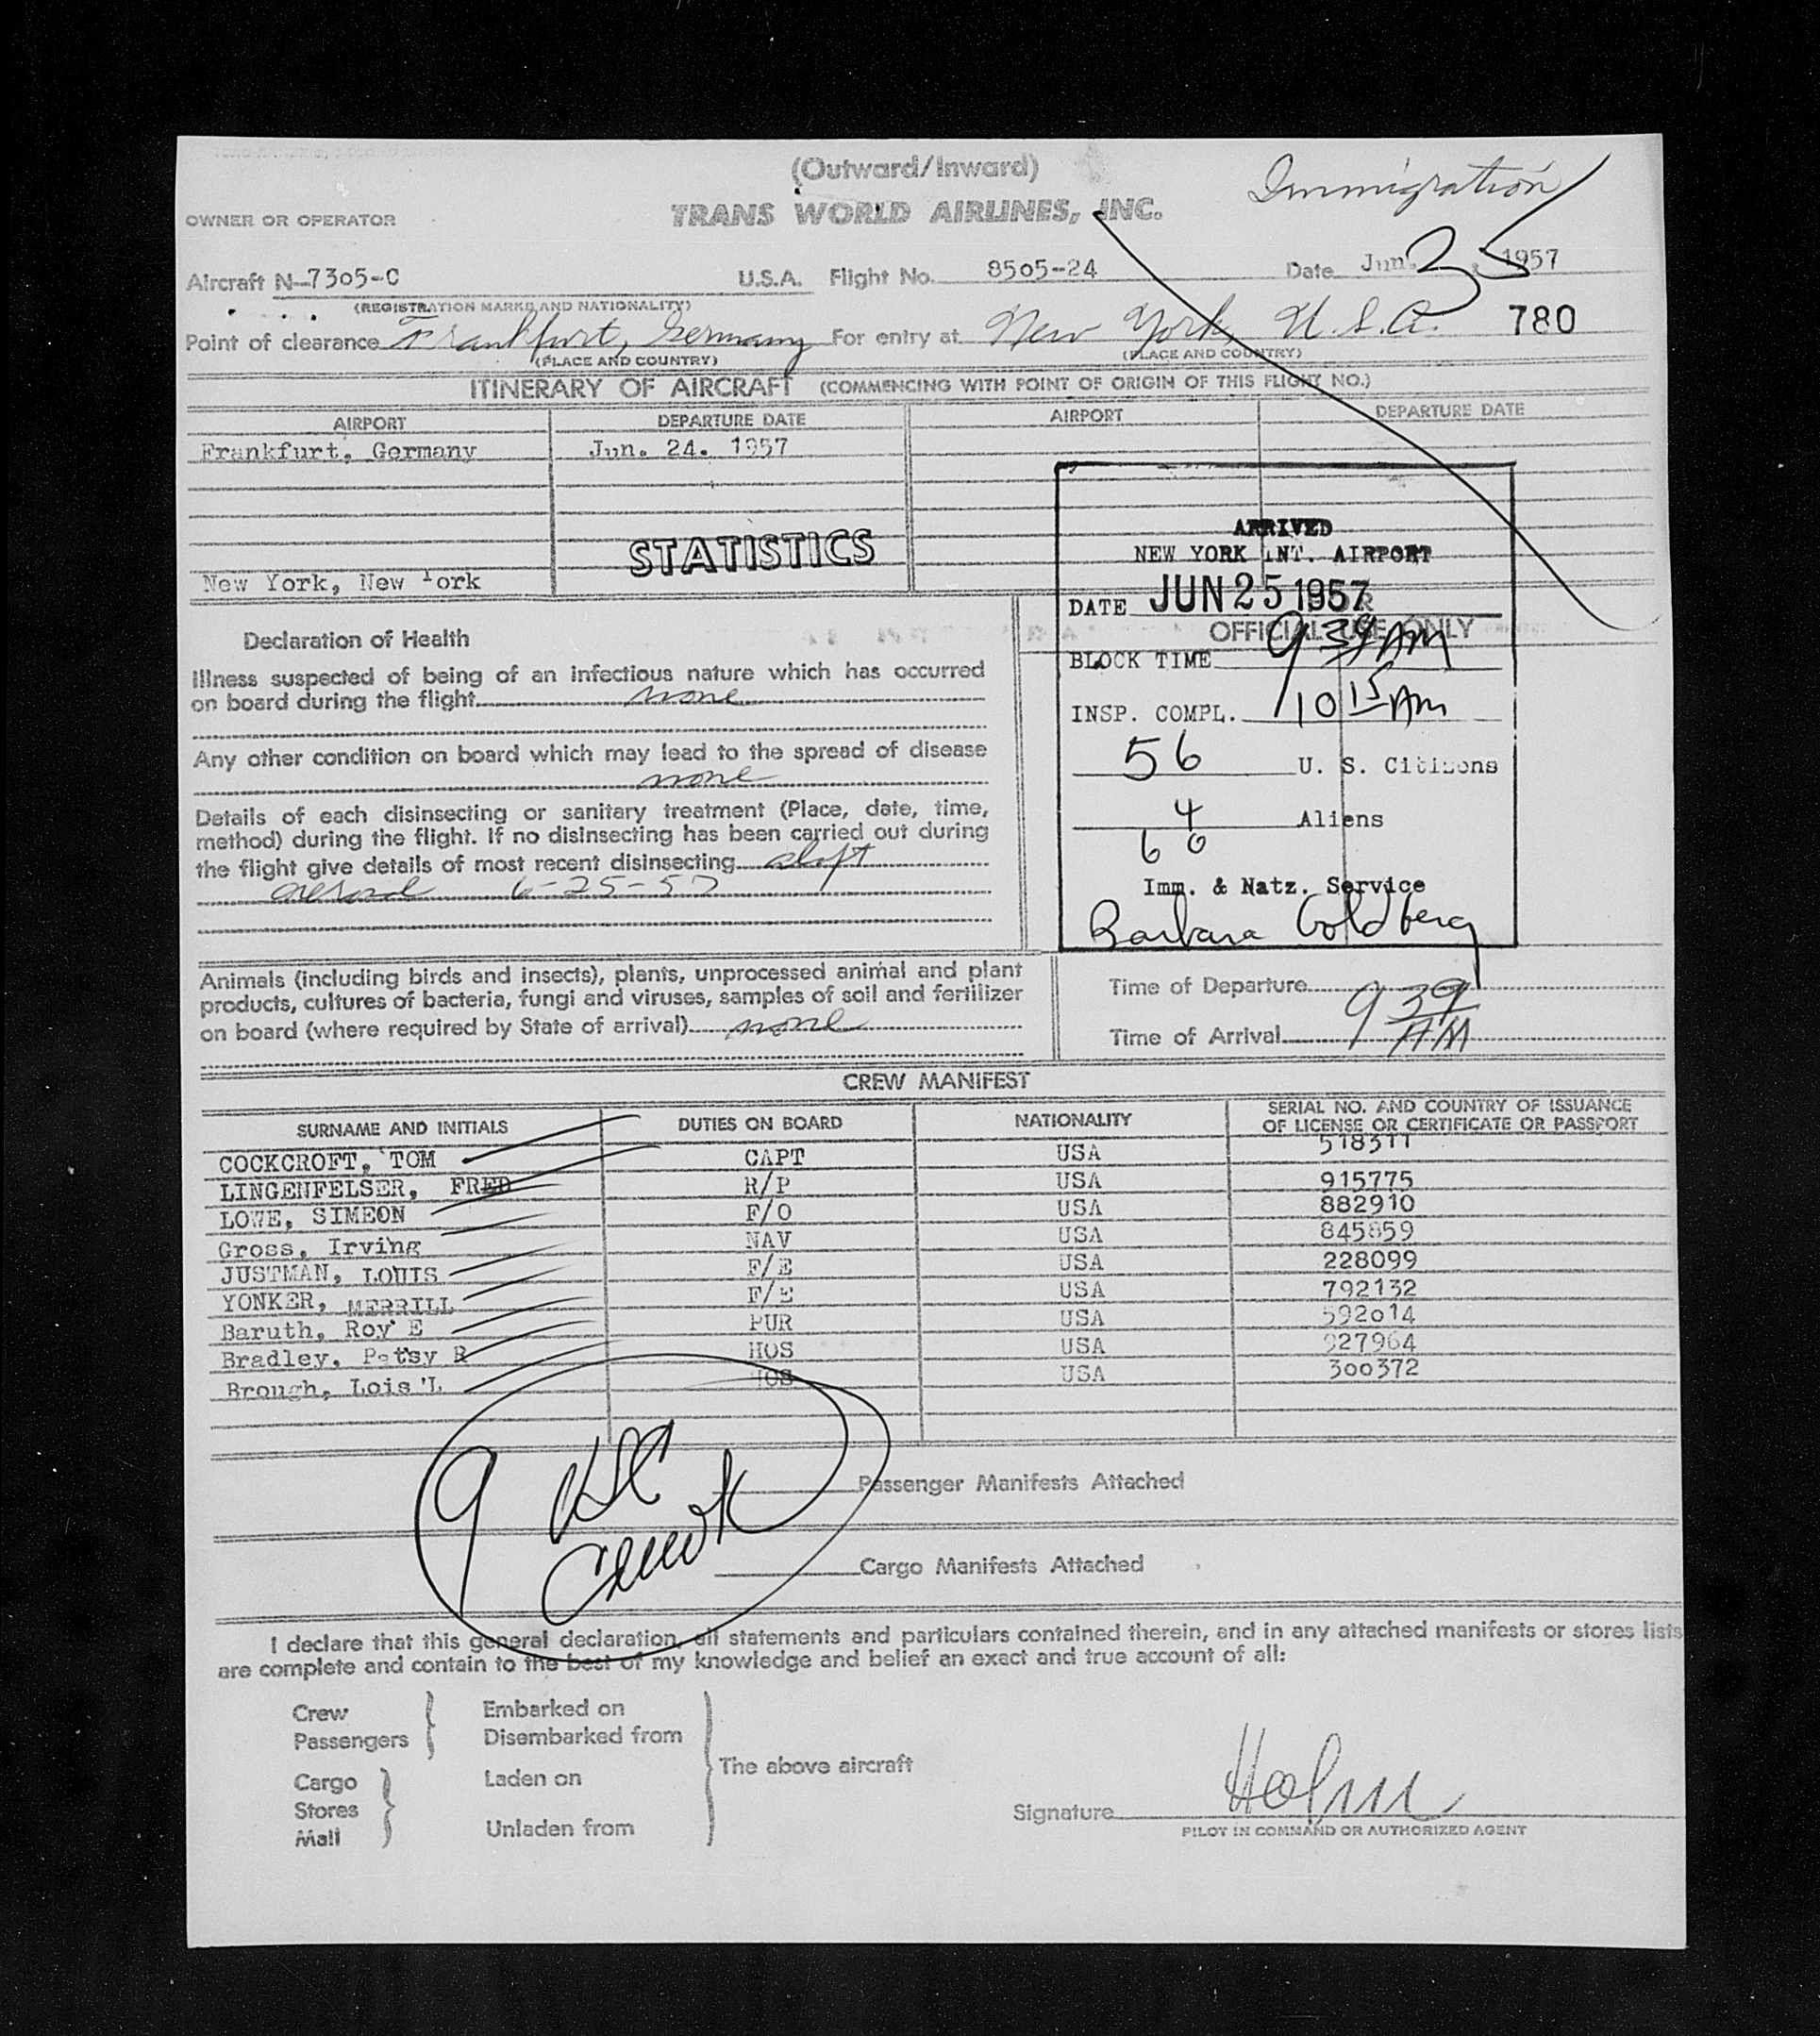 (Outward/Inward)
Immigration
OWNER OR OPERATOR TRANS WORLD AIRLINES, INC.
Aircraft N-7305-C U.S.A. Flight No. 8505-24 Date Jun. 25, 1957
(REGISTRATION MARKS AND NATIONALITY)
780
Point of clearance Frankfurt, Germany For entry at New York, U.S.A.
(PLACE AND COUNTRY) (PLACE AND COUNTRY)
ITINERARY OF AIRCRAFT (COMMENCING WITH POINT OF ORIGIN OF THIS FLIGHT NO.)
AIRPORT DEPARTURE DATE AIRPORT DEPARTURE DATE
Frankfurt, Germany Jun. 24. 1957
STATISTICS
New York, New York
ARRIVED
NEW YORK INT. AIRPORT
DATE JUN 25 1957
OFFICIAL USE ONLY
BLOCK TIME 9 39 AM
INSP. COMPL. 10 15 AM
56 U. S. Citizens
4 Aliens
60
Imm. & Natz. Service
Barbara Goldberg
Declaration of Health
Illness suspected of being of an infectious nature which has occurred
on board during the flight none
Any other condition on board which may lead to the spread of disease
none
Details of each disinsecting or sanitary treatment (Place, date, time,
method) during the flight. If no disinsecting has been carried out during
the flight give details of most recent disinsecting aloft
aerosol 6-25-57
Animals (including birds and insects), plants, unprocessed animal and plant
products, cultures of bacteria, fungi and viruses, samples of soil and fertilizer
on board (where required by State of arrival) none
Time of Departure
Time of Arrival 9 39 AM
CREW MANIFEST
SURNAME AND INITIALS DUTIES ON BOARD NATIONALITY SERIAL NO. AND COUNTRY OF ISSUANCE
OF LICENSE OR CERTIFICATE OR PASSPORT
COCKCROFT, TOM CAPT USA 518311
LINGENFELSER, FRED R/P USA 915775
LOWE, SIMEON F/O USA 882910
Gross, Irving NAV USA 845859
JUSTMAN, LOUIS F/E USA 228099
YONKER, MERRILL F/E USA 792132
Baruth, Roy E PUR USA 592014
Bradley, Patsy R HOS USA 927964
Brough, Lois L HOS USA 300372
9 USC
Crew
Passenger Manifests Attached
Cargo Manifests Attached
I declare that this general declaration, all statements and particulars contained therein, and in any attached manifests or stores lists
are complete and contain to the best of my knowledge and belief an exact and true account of all:
Crew
Passengers
Embarked on
Disembarked from
Cargo
Stores
Mail
Laden on
Unladen from
The above aircraft
Signature
PILOT IN COMMAND OR AUTHORIZED AGENT